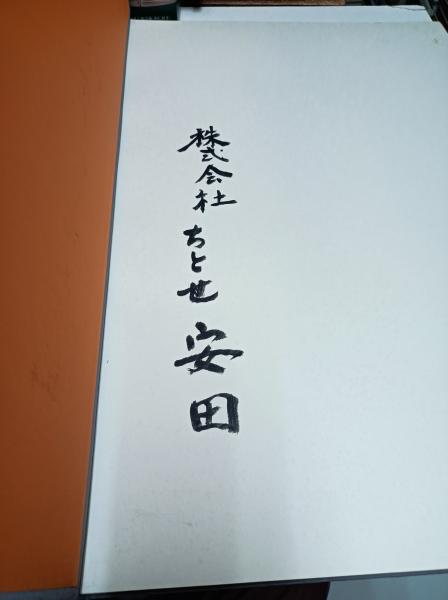 株式会社ちとせ安田